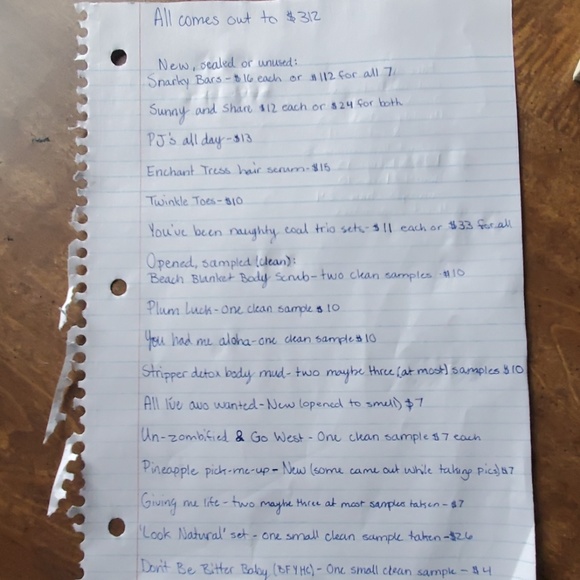 All comes out to $312
New, sealed or unused:
Snarky Bars - $16 each or $112 for all 7
Sunny and Share $12 each or $24 for both
PJ's all day - $13
Enchant Tress hair serum - $15
Twinkle Toes - $10
You've been naughty coal trio sets - $11 each or $33 for all
Opened, sampled (clean):
Beach Blanket Body Scrub - two clean samples $10
Plum Luck - one clean sample $10
You had me aloha - one clean sample $10
Stripper detox body mud - two maybe three (at most) samples $10
All I've avo wanted - New (opened to smell) $7
Un-zombified & Go West - One clean sample $7 each
Pineapple pick-me-up - New (some came out while taking pics) $7
Giving me life - two maybe three at most samples taken - $7
'Look Natural' set - one small clean sample taken - $26
Don't Be Bitter Baby (BFYHC) - One small clean sample - $4